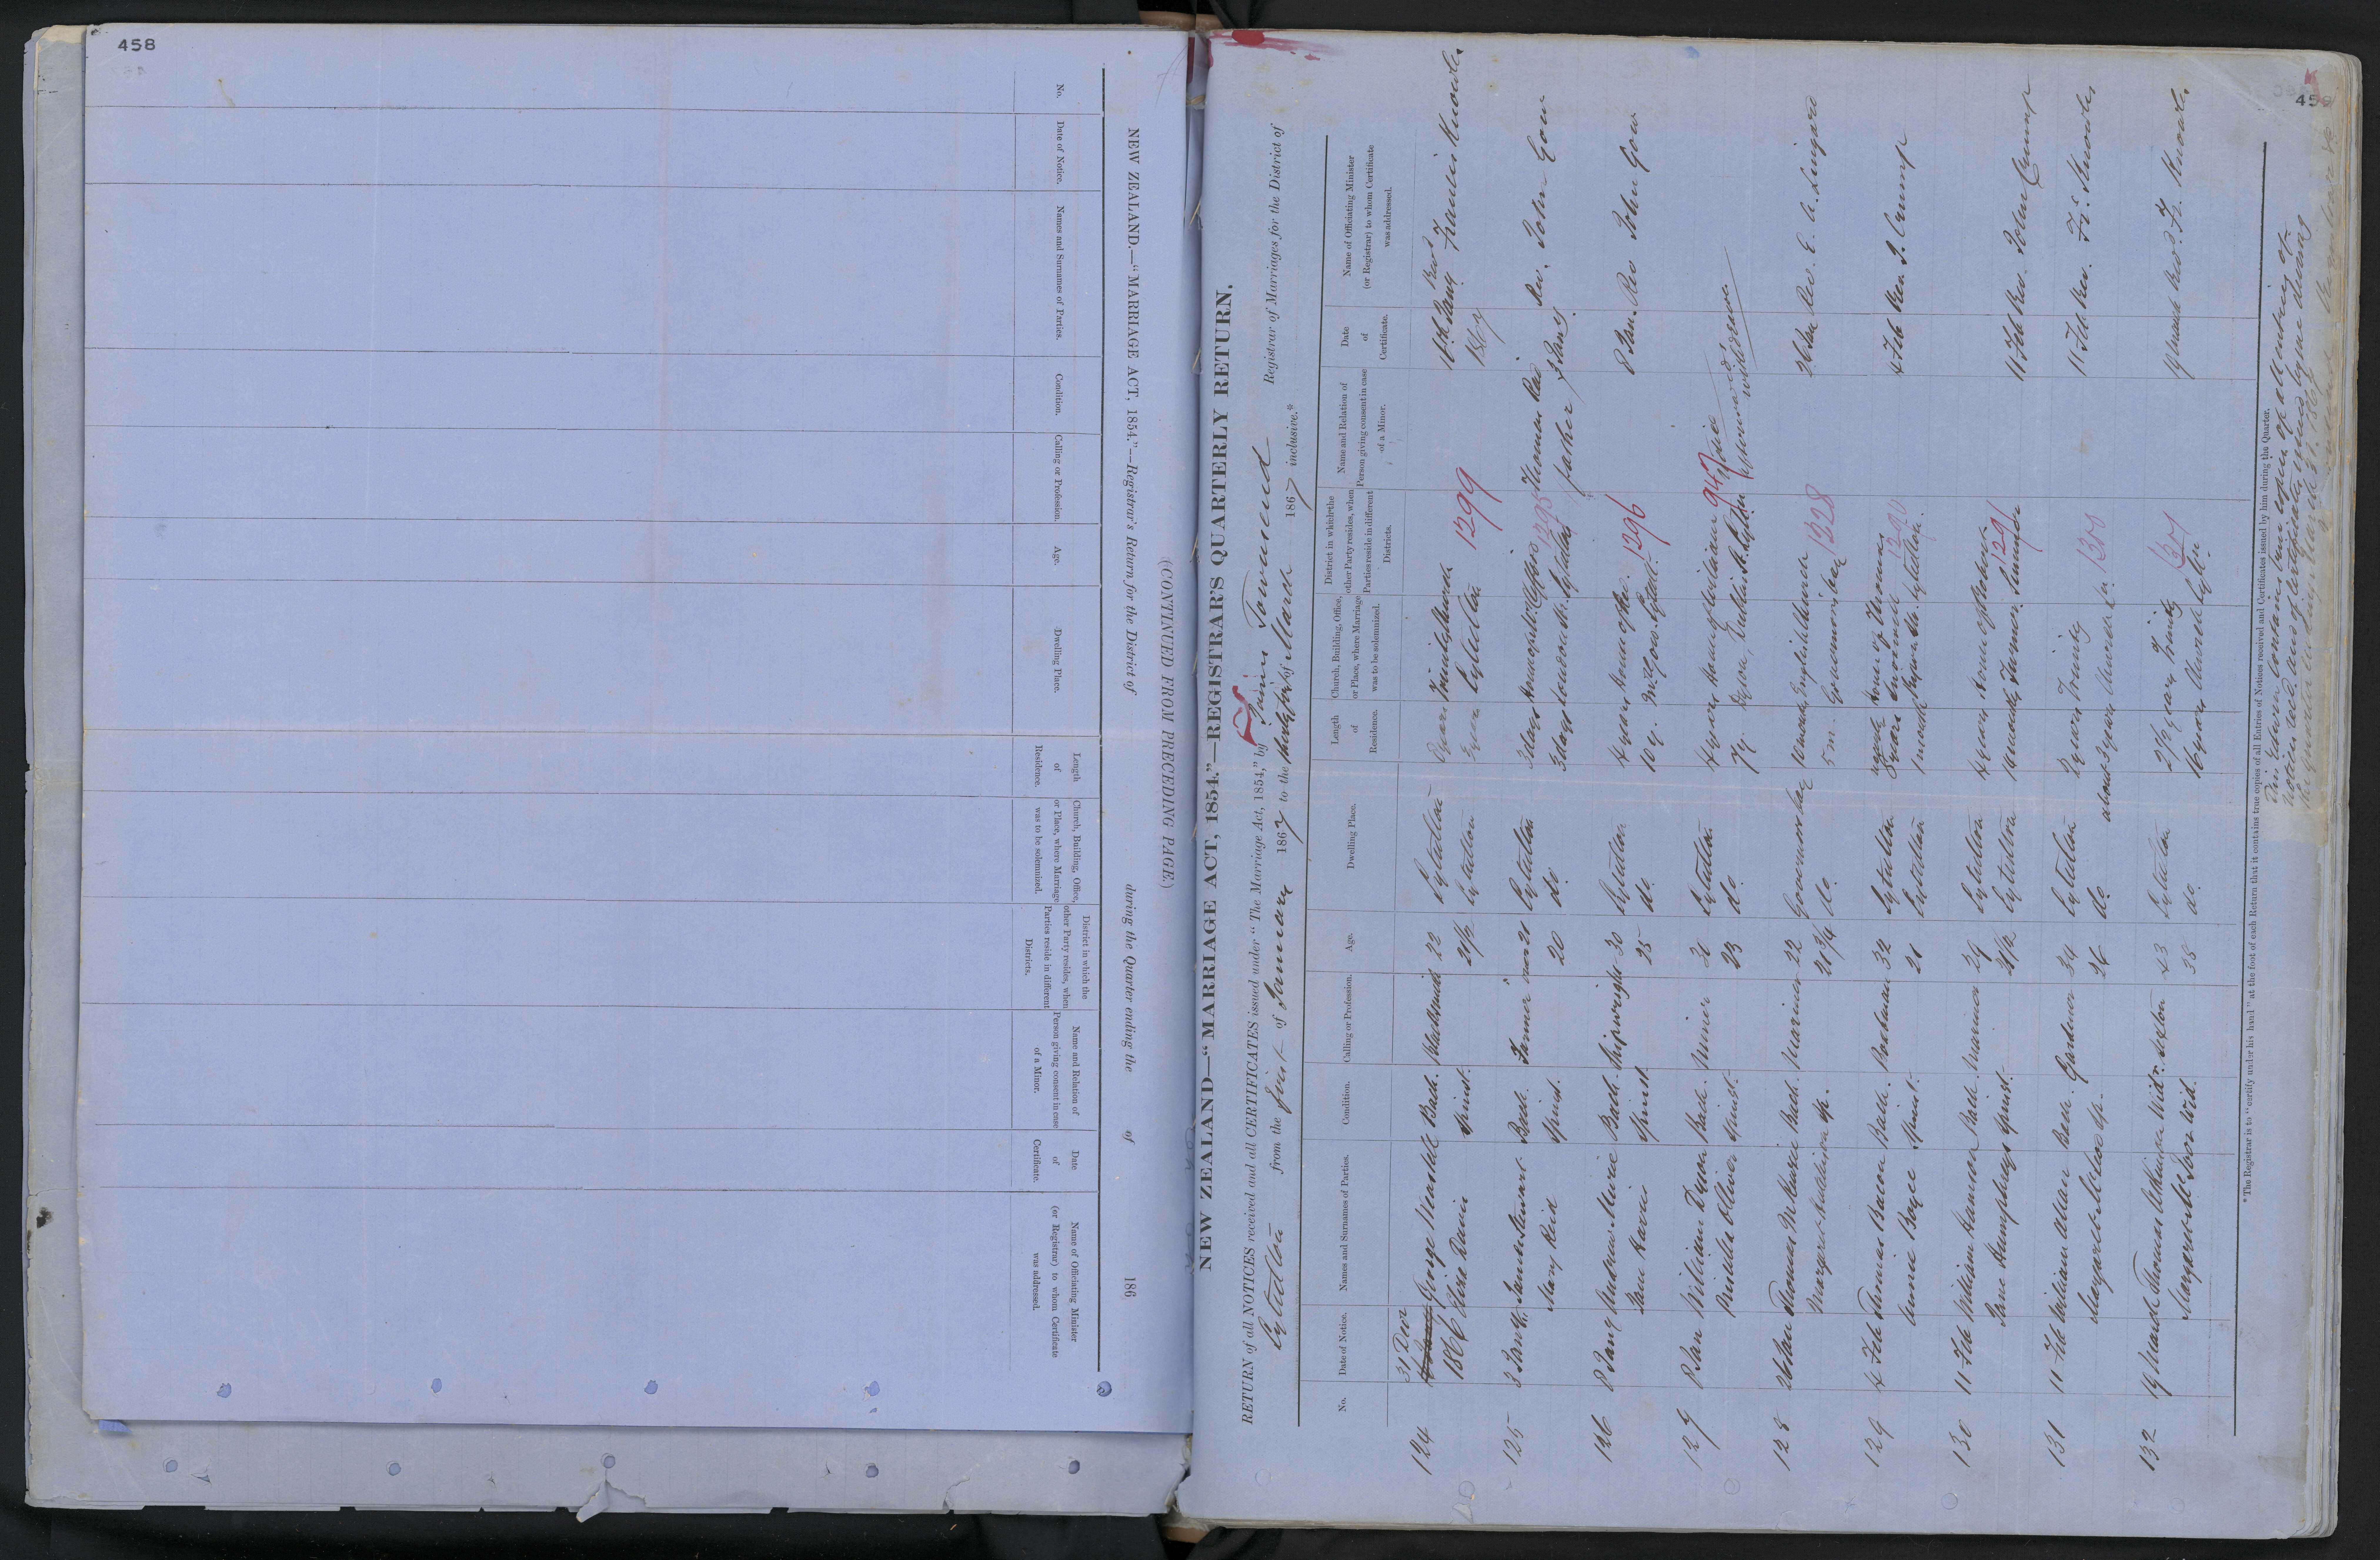 458
NEW ZEALAND.—“MARRIAGE ACT, 1854.”—Registrar's Return for the District of during the Quarter ending the of 186
(CONTINUED FROM PRECEDING PAGE.)
No.
Date of Notice.
Names and Surnames of Parties.
Condition.
Calling or Profession.
Age.
Dwelling Place.
Length
of
Residence.
Church, Building, Office,
or Place, where Marriage
was to be solemnized.
District in which the
other Party resides, when
Parties reside in different
Districts.
Name and Relation of
Person giving consent in case
of a Minor.
Date
of
Certificate.
Name of Officiating Minister
(or Registrar) to whom Certificate
was addressed.
459
NEW ZEALAND—“MARRIAGE ACT, 1854.”—REGISTRAR'S QUARTERLY RETURN.
RETURN of all NOTICES received and all CERTIFICATES issued under “The Marriage Act, 1854,” by Townsend Registrar of Marriages for the District of
Lyttelton from the first of January 1867 to the thirty first of March 1867 inclusive.*
No.
Date of Notice.
Names and Surnames of Parties.
Condition.
Calling or Profession.
Age.
Dwelling Place.
Length
of
Residence.
Church, Building, Office,
or Place, where Marriage
was to be solemnized.
District in which the
other Party resides, when
Parties reside in different
Districts.
Name and Relation of
Person giving consent in case
of a Minor.
Date
of
Certificate.
Name of Officiating Minister
(or Registrar) to whom Certificate
was addressed.
124 31 Decr George Bach. Blacksmith 22 Lyttelton Trinity Church 16th Jany Revd Francis Knowles
1866 Eliza Davis Spinst. 21½ Lyttelton Lyttelton 1299 1867
125 3 Jany James Stewart Bach. Farmer near 21 Lyttelton 3 days 1295 Thomas Reid 3 Jany. Rev. John Gow
Mary Reid Spinst. 20 do. 3 days London St. Lyttelton father
126 8 Jany Andrew Bach. Shipwright 30 Lyttelton 4 years house of Rev. 8 Jan. Rev John Gow
Jane Spinst 25 do. 10 y. Mr Gow. Lyttel. 1296
127 8 Jan William Dyson Bach. Miner 26 Lyttelton 4 years house of William 947 notice
Oliver Spinst. 23 do. 7 y. Dyson, Dublin St. Lyttn afterwards withdrawn
128 26 Jan Thomas McKenzie Bach. Mariner 22 Governors bay 10 months English Church 26 Jan Rev. E. A. Lingard
Margaret sp. 21¾ do. 5 m. Governors bay 1328
129 4 Feb Thomas Bacon Bach. Boatman 32 Lyttelton house of Thomas 4 Feb Rev. J. Crump
Annie Boyce Spinst. 21 Lyttelton 1 month Lyttelton. 1290
130 11 Feb William Hammon Bach. Mariner 29 Lyttelton 4 years house of 11 Feb Rev. John Crump
Jane Humphreys Spinst. 21½ Lyttelton 16 months Sumner 1291
131 11 Feb William Allan Bach. Gardener 34 Lyttelton 2 years Trinity 11 Feb Rev. Fr. Knowles
Margaret sp. 26 do. about 3 years Church Ln.
132 19 March Thomas Widr. Sexton 43 Lyttelton 2½ years Trinity 19 March Revd. Fr. Knowles
Margaret Wid. 38 do. 16 years Church Lytn.
* The Registrar is to “certify under his hand” at the foot of each Return that it contains true copies of all Entries of Notices received and Certificates issued by him during the Quarter.
This Return contains true copies of all entries of
notices recd. and of certificates issued by me during
the quarter ending March 31. 1867